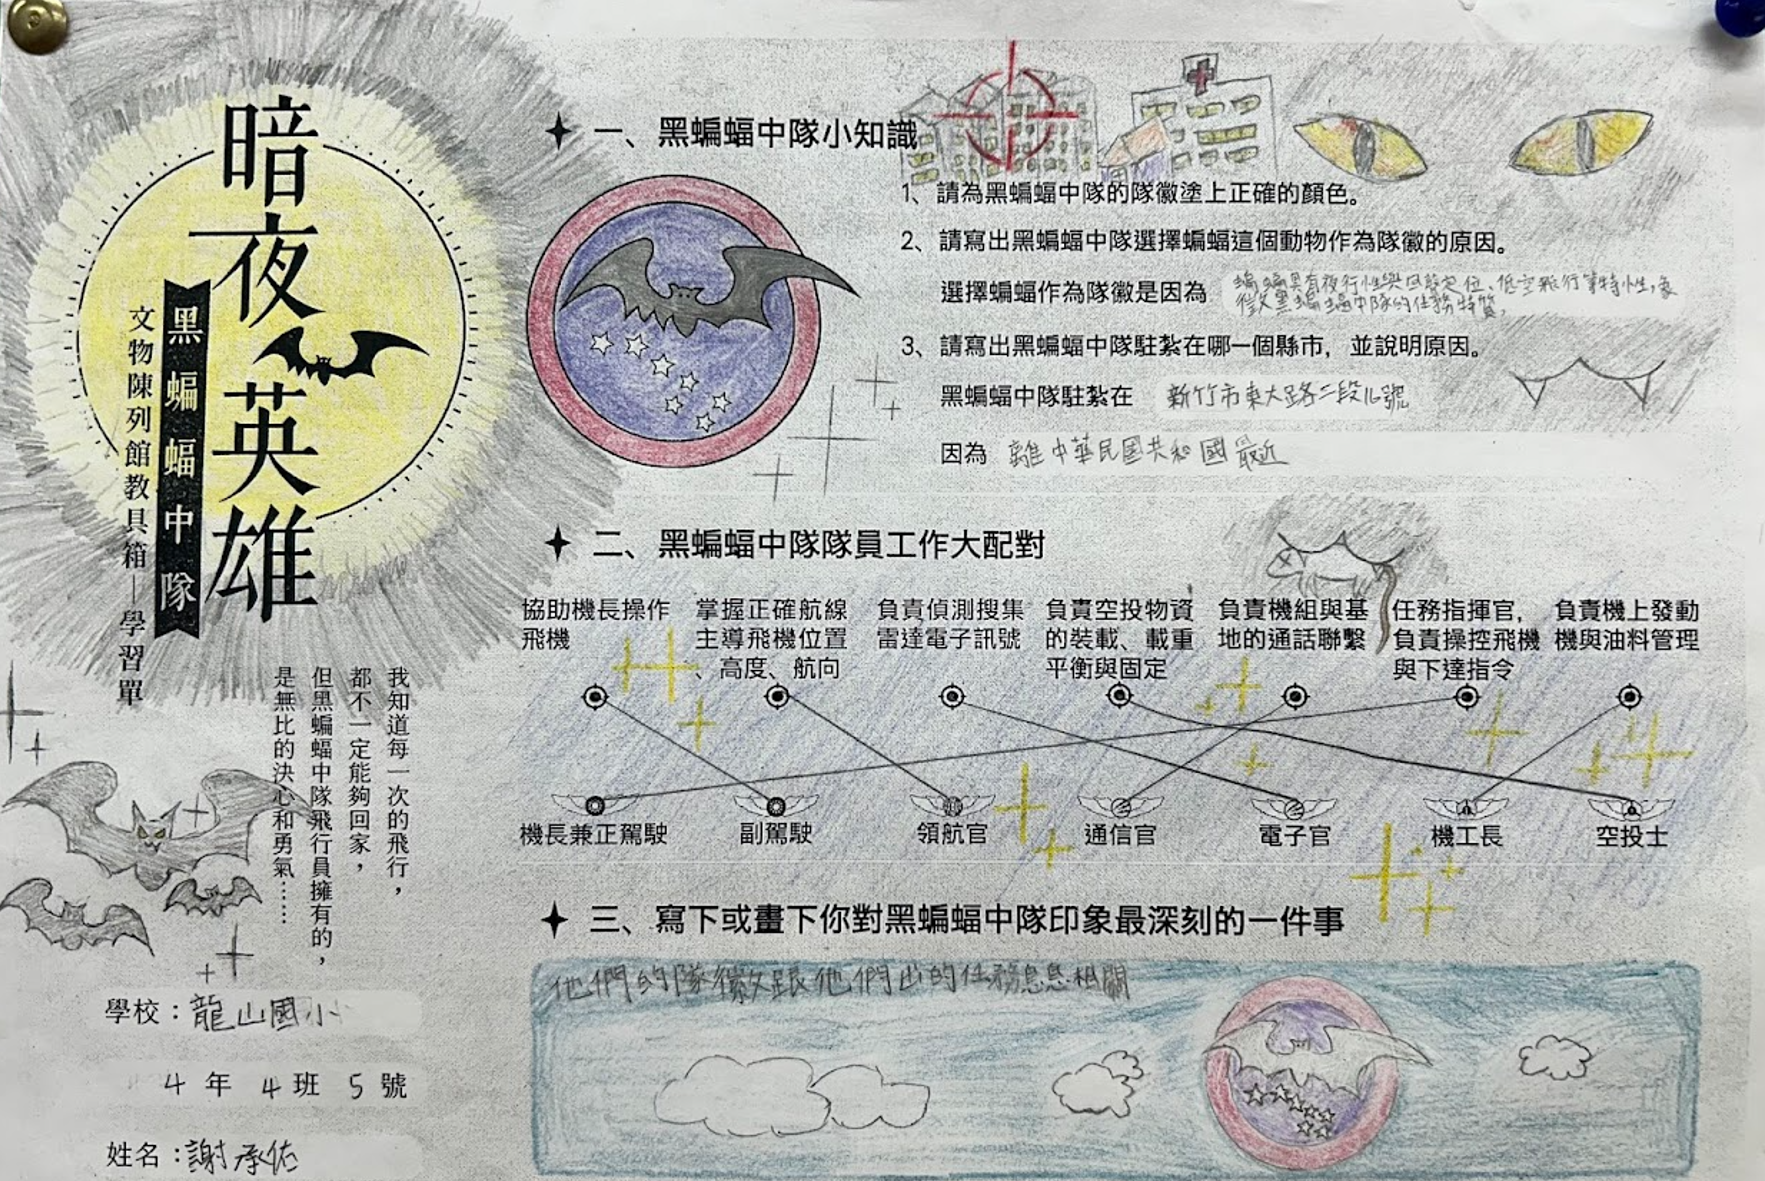 暗夜英雄
黑蝙蝠中隊
文物陳列館教具箱—學習單
我知道每一次的飛行，
都不一定能夠回家，
但黑蝙蝠中隊飛行員擁有的，
是無比的決心和勇氣……
學校：龍山國小
4年4班5號
姓名：謝承佑
一、黑蝙蝠中隊小知識
1、請為黑蝙蝠中隊的隊徽塗上正確的顏色。
2、請寫出黑蝙蝠中隊選擇蝙蝠這個動物作為隊徽的原因。
選擇蝙蝠作為隊徽是因為 蝙蝠具有夜行性與回聲定位、低空飛行等特性,象
徵黑蝙蝠中隊的任務特質,
3、請寫出黑蝙蝠中隊駐紮在哪一個縣市，並說明原因。
黑蝙蝠中隊駐紮在 新竹市東大路二段16號
因為 離中華民國共和國最近
二、黑蝙蝠中隊隊員工作大配對
協助機長操作
飛機
掌握正確航線
主導飛機位置
、高度、航向
負責偵測搜集
雷達電子訊號
負責空投物資
的裝載、載重
平衡與固定
負責機組與基
地的通話聯繫
任務指揮官，
負責操控飛機
與下達指令
負責機上發動
機與油料管理
機長兼正駕駛
副駕駛
領航官
通信官
電子官
機工長
空投士
三、寫下或畫下你對黑蝙蝠中隊印象最深刻的一件事
他們的隊徽跟他們出的任務息息相關